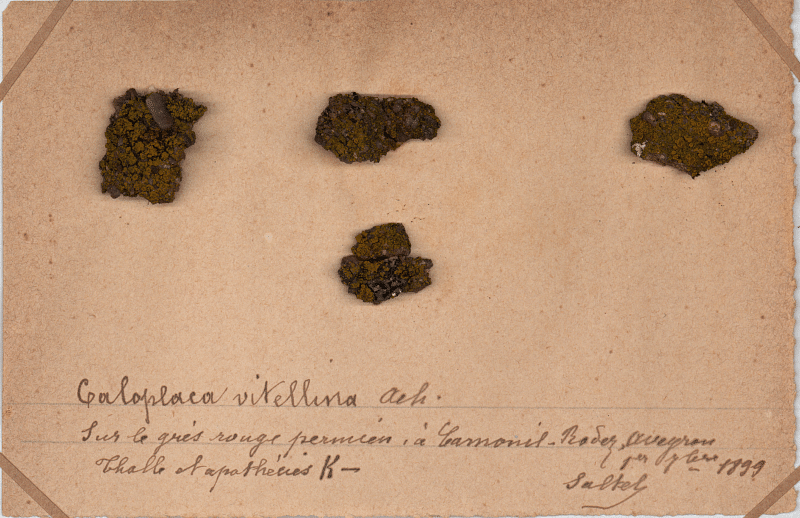 Caloplaca vitellina Ach.
Sur le grès rouge permien, à Camonil-Rodez, Aveyron
1er 7bre 1899
Thalle et apothécies K—
Saltel